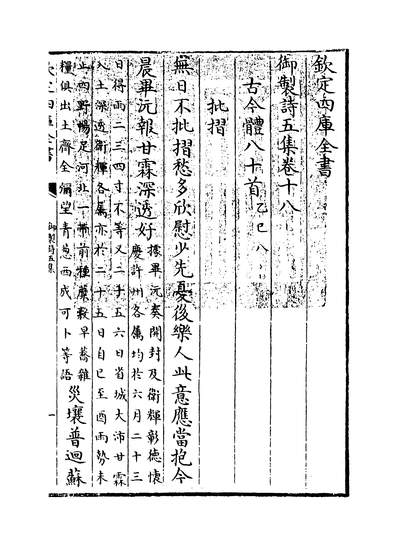 欽定四庫全書
御製詩五集卷十八
古今體八十首乙巳八
批摺
無日不批摺愁多欣慰少先憂後樂人此意應當抱今
晨畢沅報甘霖深透好據畢沅奏開封及衛輝彰德懷
慶許州各屬均於六月二十三
日得雨二三四寸不等又二十五六日省城大沛甘霖
入土深透衛輝各屬亦於二十五日自巳至酉雨勢未
止四野暢足河北一帶前種蕎穀早蕎雜
糧俱出土齊全彌望青葱西成可卜等語災壤普迴蘇
欽定四庫全書
御製詩五集
一